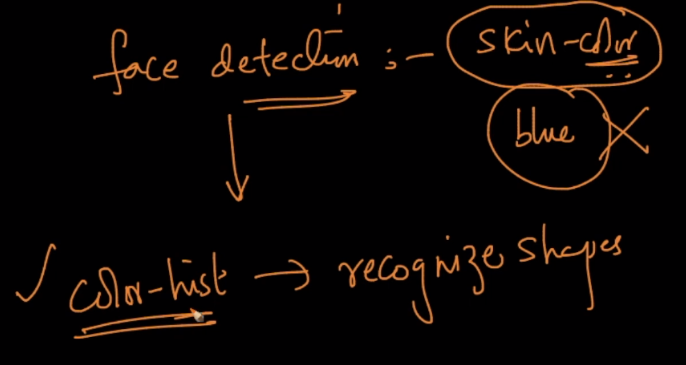 face detection :- skin-color
blue
color-hist → recognize shapes